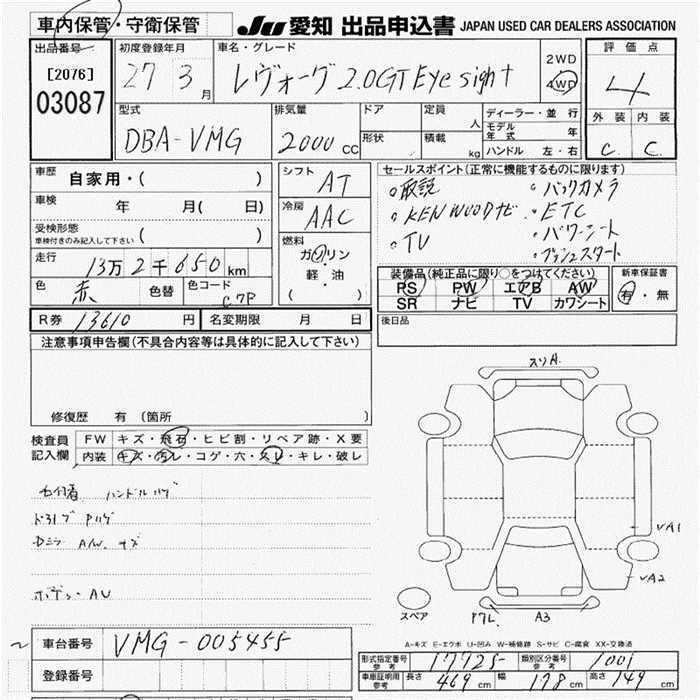 車内保管・守衛保管 JU 愛知 出品申込書 JAPAN USED CAR DEALERS ASSOCIATION
出品番号 初度登録年月 車名・グレード 評価点
[2076] 27 3月 レヴォーグ 2.0GT Eye sight 2WD 4WD 4
03087
型式 排気量 ドア 定員 人 ディーラー・並行 外装 内装
DBA-VMG 2000cc 形状 積載 kg モデル年式 年 C. C.
ハンドル 左・右
車歴 自家用・( ) シフト AT セールスポイント(正常に機能するものに限ります)
車検 年 月( 日) 冷房 AAC 取説 バックカメラ
受検形態 ( ) KENWOODナビ ETC
車検付きのみ記入して下さい 燃料 TV パワーシート
走行 13万2千650km ガソリン プッシュスタート
軽・油
( )
色 赤 色替 色コード C7P
装備品(純正品に限り○をつけてください) 新車保証書
PS PW エアB AW 有・無
SR ナビ TV カワシート
R券 13610円 名変期限 月 日 後日品
注意事項申告欄(不具合内容等は具体的に記入して下さい)
修復歴 有 (箇所
スリA.
検査員 FW キズ・飛石・ヒビ割・リペア跡・X要
記入欄 内装 キズ・汚レ・コゲ・穴・スレ・キレ・破レ
ハンドル
A/W キズ
VA1
ボデー AU
VA2
スペア A3
A-キズ E-エクボ U-凹み W-補修跡 S-サビ C-腐食 XX-交換済
車台番号 VMG-005455
型式指定番号 参考 17725 類別区分番号 参考 1001
登録番号
車庫証明用 参考 長さ 469cm 幅 178cm 高さ 149cm